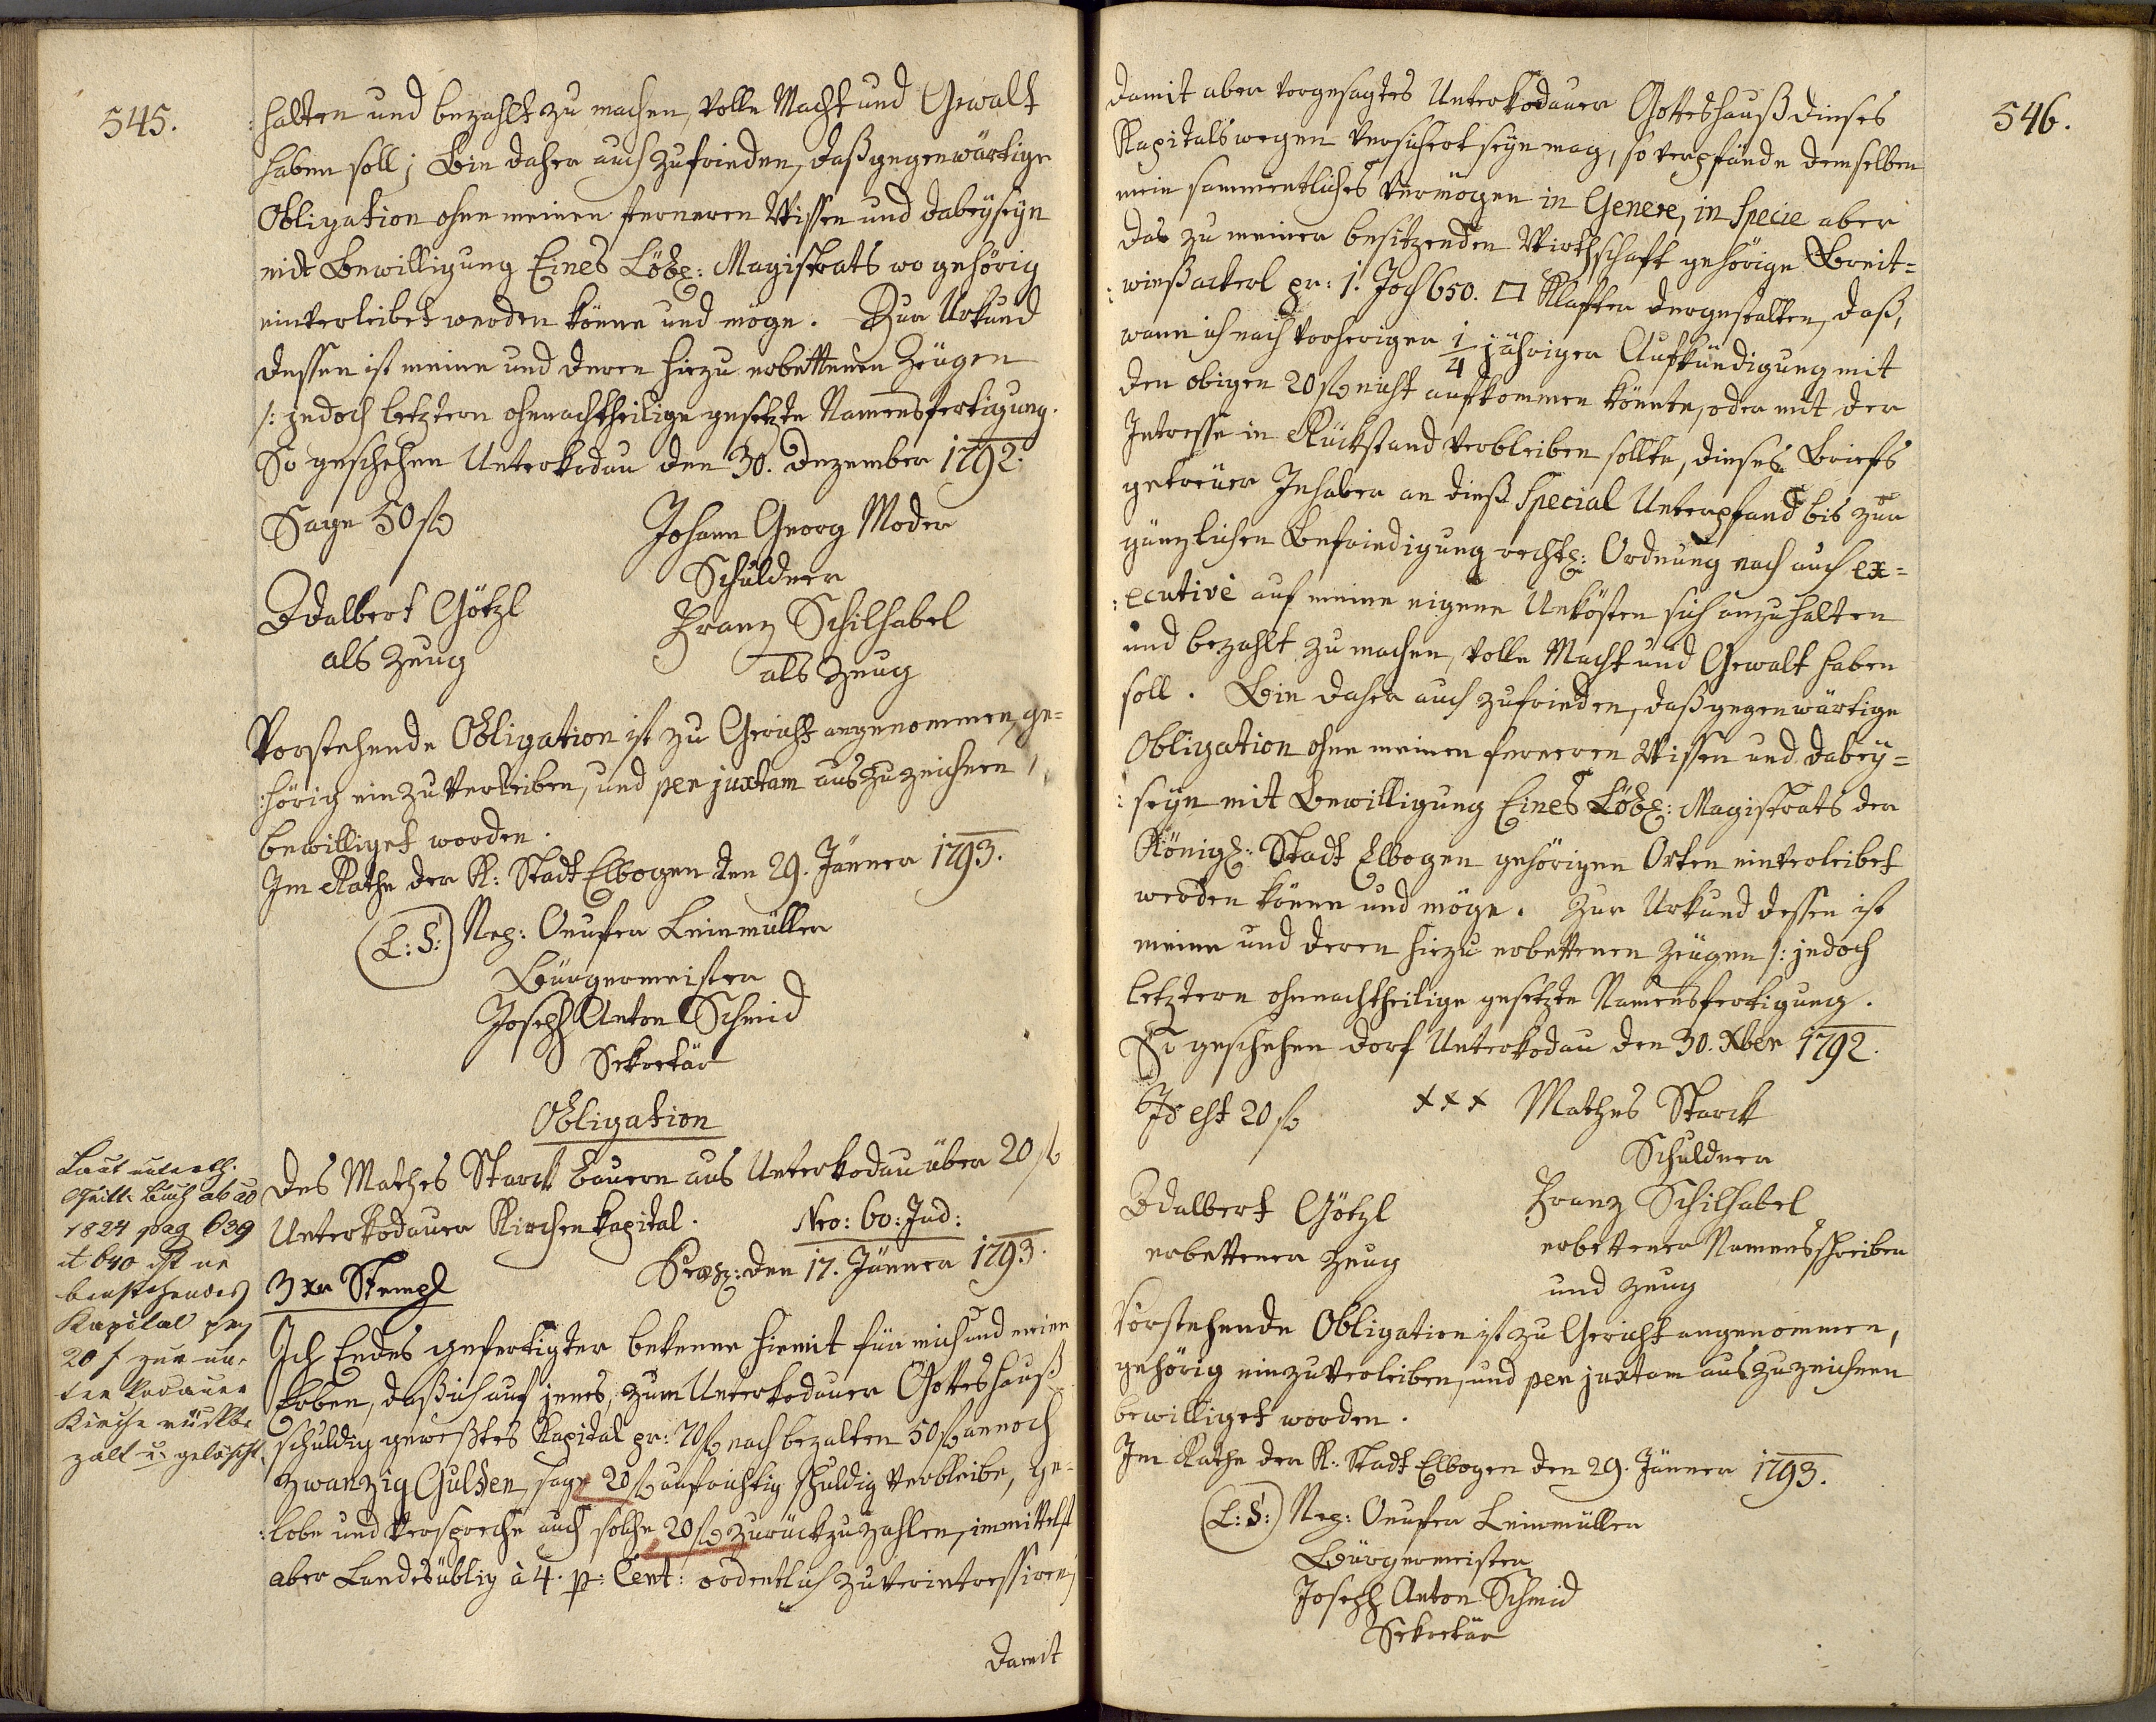 545.
halten und bezahlt zu machen, volle Macht und Gewalt
haben soll; Bin daher auch zufrieden, daß gegenwärtige
Obligation ohne meinen ferneren Wissen und dabeyseyn
mit Bewilligung Eines Löbl: Magistrats wo gehörig
einverleibet werden könne und möge. Zur Urkund
dessen ist meine und deren hiezu erbettenen Zeugen
/: jedoch letztern ohnnachtheilige gesetzte Namensfertigung.
So geschehen Unterkodau den 30. Dezember 1792.
Sage 50 f
Johann Georg Moder
Schuldner
Adalbert Götzl
als Zeug
Franz Schilhabel
als Zeug
Vorstehende Obligation ist zu Gericht angenommen, ge=
:hörig einzuverleiben, und per juxtam auszuzeichnen
bewilliget worden.
Im Rathe der K: Stadt Elbogen den 29. Jänner 1793.
(L:S:) Nep: Onufer Leinmüller
Bürgermeister
Joseph Anton Schmid
Sekretär
Obligation
des Mathes Starck Bauern aus Unterkodau über 20 f
Unterkodauer Kirchenkapital. Nro: 60: Jud:
3 xr Stempl Præs: den 17. Jänner 1793.
Ich Endes gefertigter bekenne hiemit für mich und meine
Erben, daß ich auf jenes, zum Unterkodauer Gotteshauß
schuldig geweßtes Kapital pr: 70 f nach bezalten 50 f annoch
zwanzig Gulden sage 20 f aufrichtig schuldig verbleibe, ge=
:lobe und verspreche auch solche 20 f zurückzuzahlen, immittelst
aber Landesüblig à 4. p: Cent: ordentlich zu verintressiren,
damit
Laut unterth.
Quitt. Buch ab ao
1824 pag 639
et 640 ist ne
benstehendes
Kapital pr
20 f zur un-
ter Kodauer
Kirche rückbe
zalt u. gelöscht.
546.
damit aber vorgesagtes Unterkodauer Gotteshauß dieses
Kapitals wegen versichert seyn mag, so verpfände demselben
mein sammentliches Vermögen in Genere, in Specie aber
das zu meiner besitzenden Wirthschaft gehörige Breit=
:wießackerl pr: 1. Joch 650. □ Klafter dergestalten, daß,
wann ich nach vorheriger 1/4 jähriger Aufkündigung mit
den obigen 20 f nicht aufkommen könnte, oder mit der
Intresse in Rückstand verbleiben sollte, dieses Briefs
getreuer Inhaber an dieß Special Unterpfand bis zur
gänzlichen Befriedigung rechtl: Ordnung nach auch ex=
:ecutivè auf meine eigene Unkösten sich anzuhalten
und bezahlt zu machen, volle Macht und Gewalt haben
soll. Bin daher auch zufrieden, daß gegenwärtige
Obligation ohne meinen ferneren Wissen und dabey=
:seyn mit Bewilligung Eines Löbl: Magistrats der
Königl: Stadt Elbogen gehörigen Orten einverleibet
werden könne und möge. Zur Urkund dessen ist
meine und deren hiezu erbettenen Zeugen /: jedoch
letztern ohnnachtheilige gesetzte Namensfertigung.
So geschehen dorf Unterkodau den 30. Xber 1792.
Id est 20 f
xxx Mathes Starck
Schuldner
Adalbert Götzl
erbettener Zeug
Franz Schilhabel
erbettener Namensschreiber
und Zeug
Vorstehende Obligation ist zu Gericht angenommen,
gehörig einzuverleiben, und per juxtam auszuzeichnen
bewilliget worden.
Im Rathe der K: Stadt Elbogen den 29. Jänner 1793.
(L:S:) Nep: Onufer Leinmüller
Bürgermeister
Joseph Anton Schmid
Sekretär